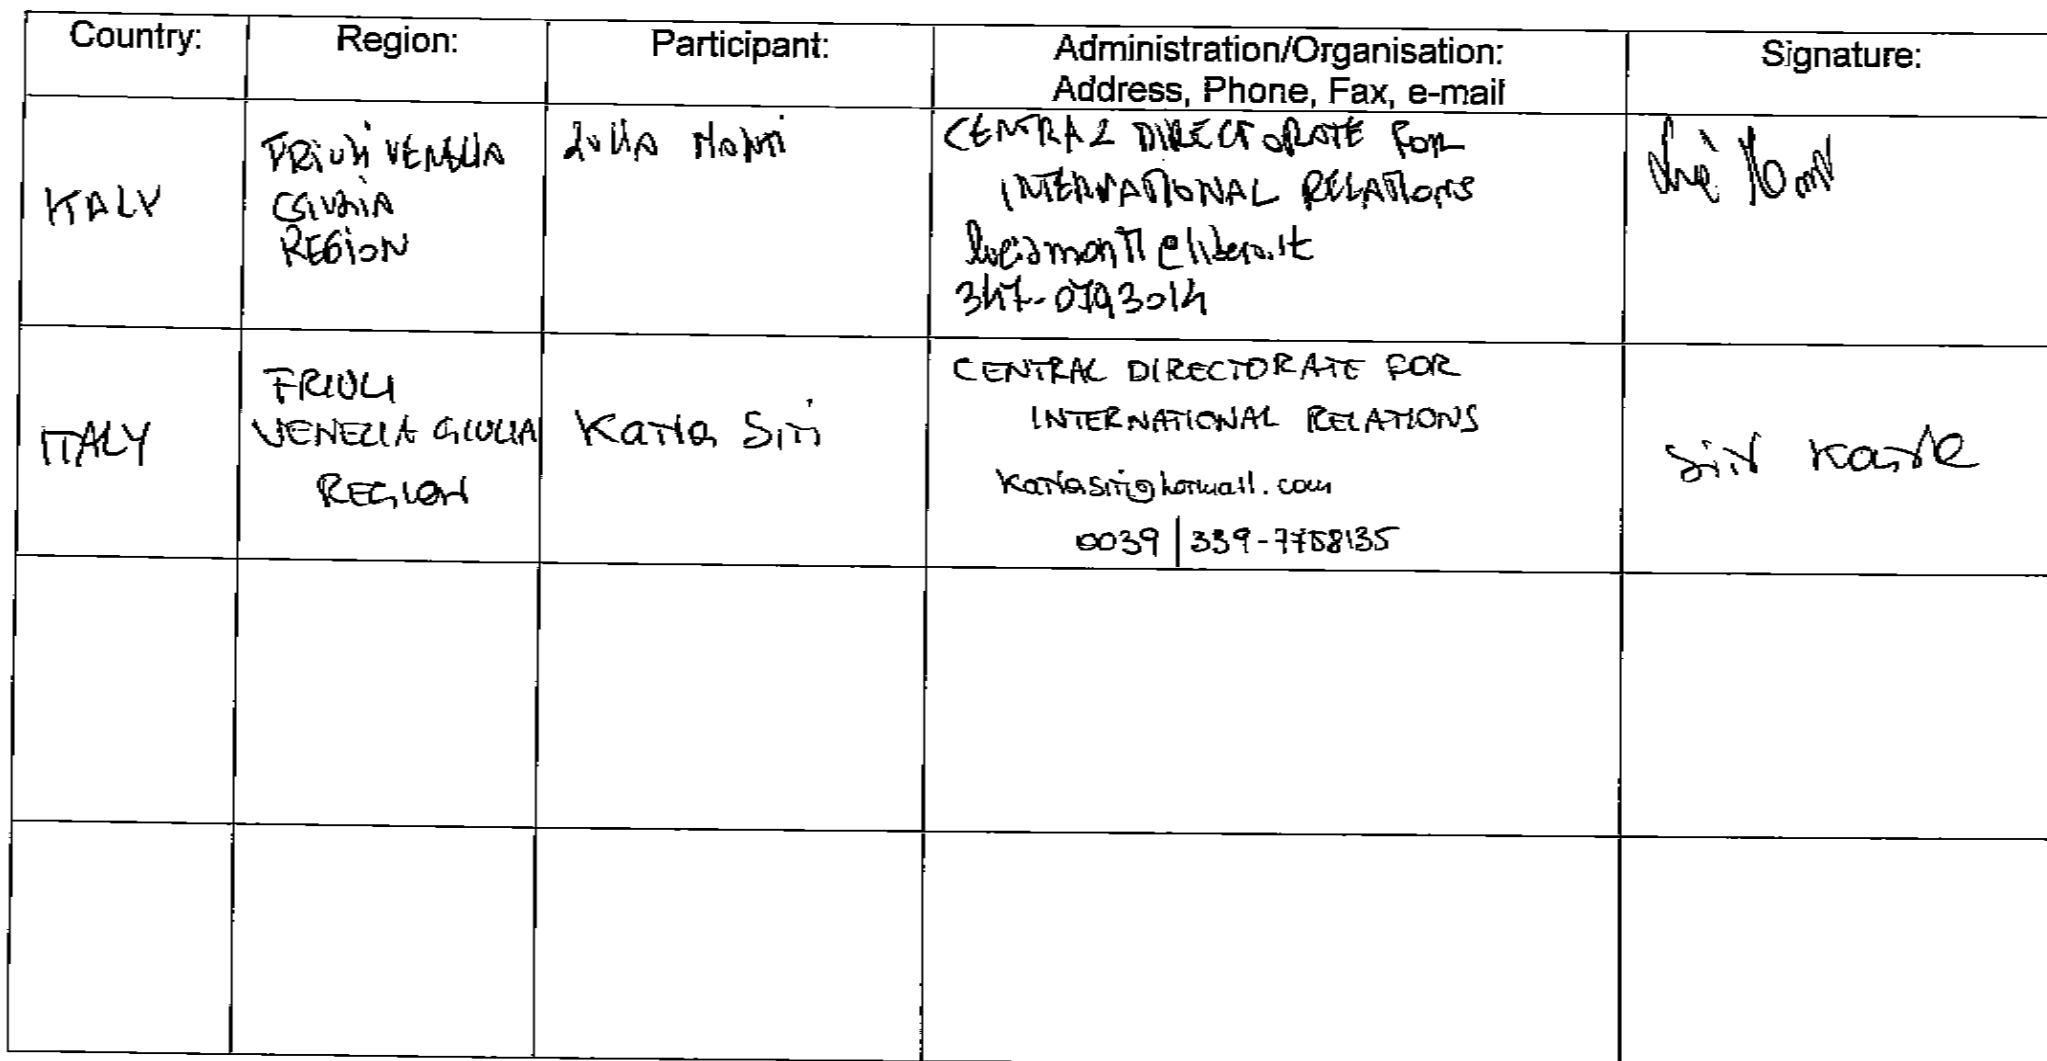 Country: Region: Participant: Administration/Organisation: Signature:
Address, Phone, Fax, e-mail
ITALY
FRIULI VENEZIA
GIULIA
REGION
CENTRAL DIRECTORATE FOR
INTERNATIONAL RELATIONS
luciamonti@libero.it
347-0793014
ITALY
FRIULI
VENEZIA GIULIA
REGION
Karla Siri
CENTRAL DIRECTORATE FOR
INTERNATIONAL RELATIONS
karlasiri@hotmail.com
0039 | 339-7758135
Siri Karla